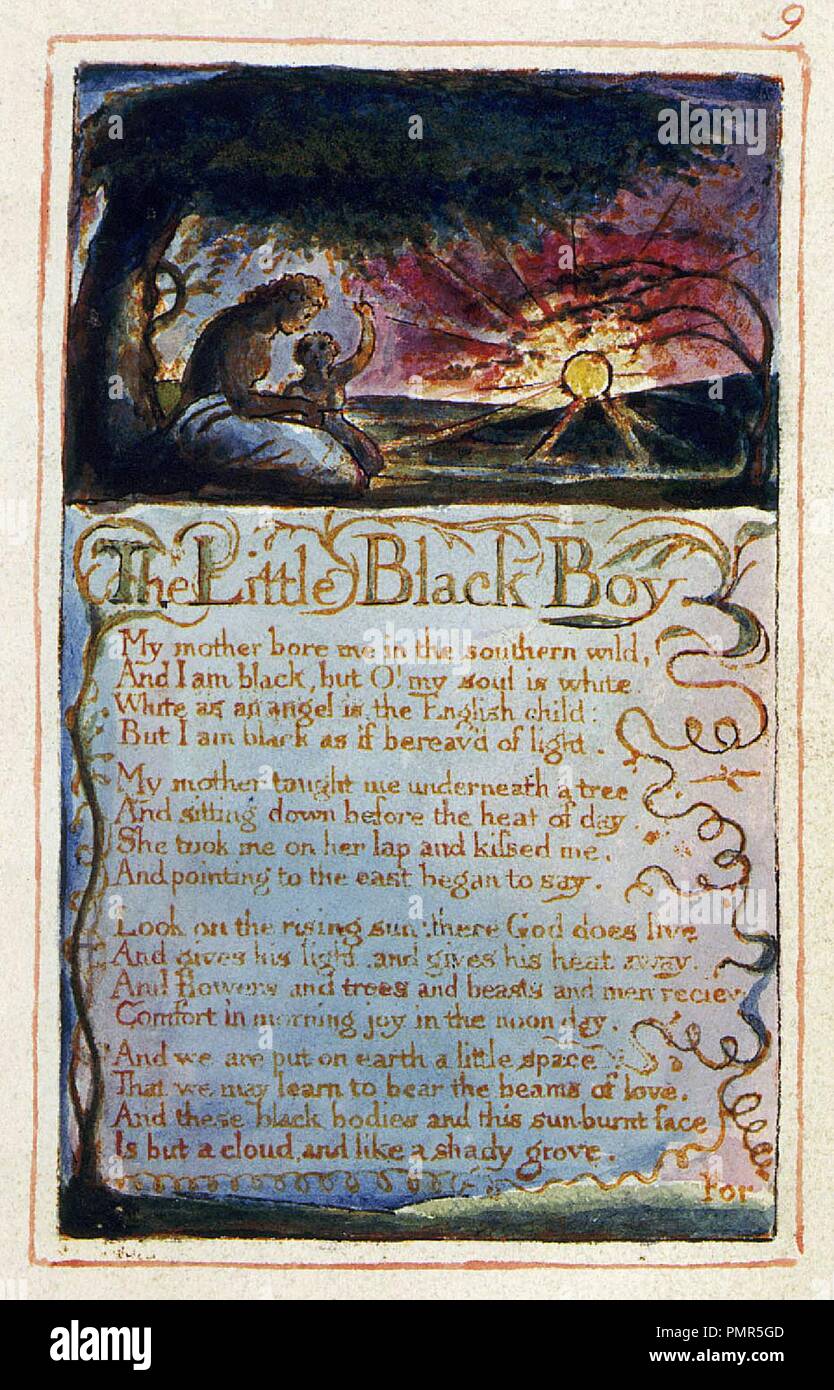 9
The Little Black Boy.
My mother bore me in the southern wild,
And I am black, but O! my soul is white
White as an angel is the English child:
But I am black as if bereav'd of light.
My mother taught me underneath a tree
And sitting down before the heat of day
She took me on her lap and kissed me,
And pointing to the east began to say.
Look on the rising sun: there God does live
And gives his light, and gives his heat away.
And flowers and trees and beasts and men recieve
Comfort in morning joy in the noon day.
And we are put on earth a little space
That we may learn to bear the beams of love.
And these black bodies and this sun-burnt face
Is but a cloud, and like a shady grove.
For
alamy
Image ID: PMR5GD
www.alamy.com